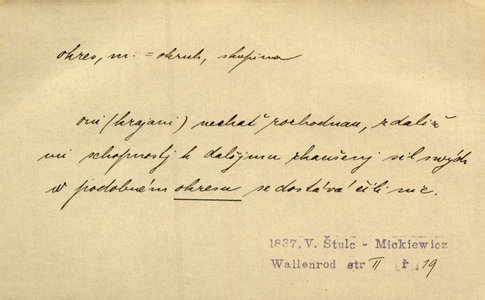 okres, m. = okruh, skupina
oni (krajani) nechať rozhodnau, zdali
mi schopnostj k dalšjmu zkaušenj sil swých
w podobném okresu se dostává čili nic.
1837. V. Štulc - Mickiewicz
Wallenrod str II ř. 19